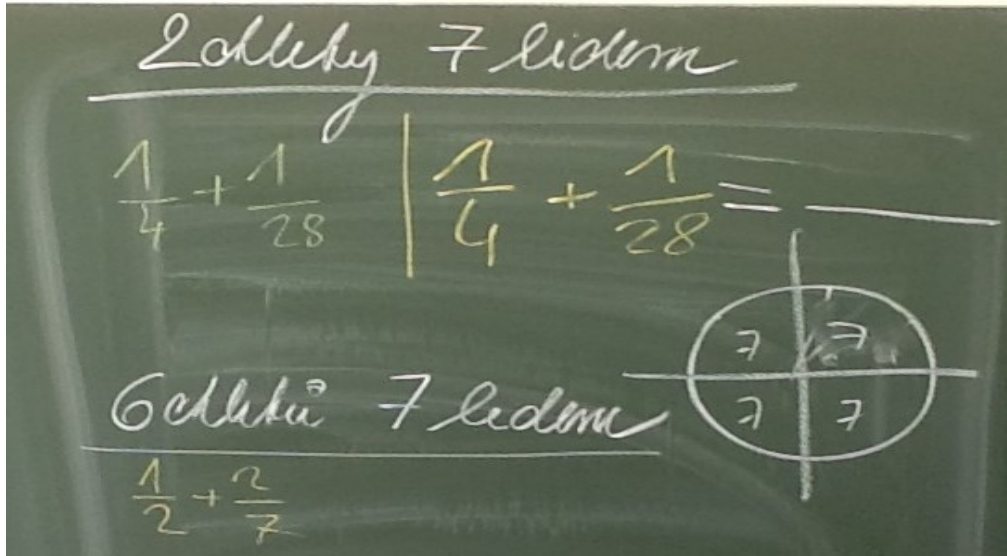 2 chleby 7 lidem
1/4 + 1/28 | 1/4 + 1/28 =
7 7
7 7
6 chlebů 7 lidem
1/2 + 2/7